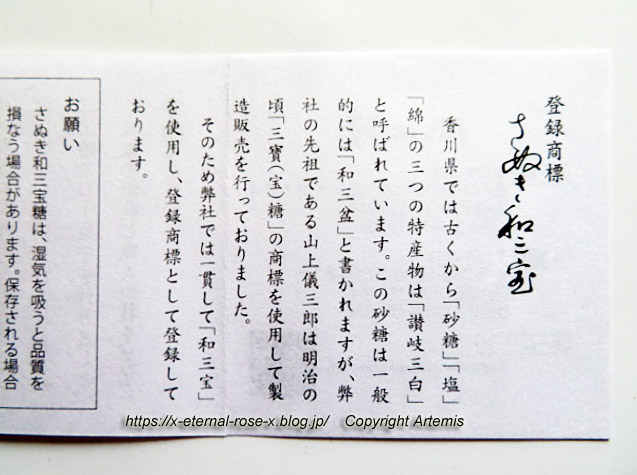 登録商標
さぬき和三宝
香川県では古くから「砂糖」「塩」
「綿」の三つの特産物は「讃岐三白」
と呼ばれています。この砂糖は一般
的には「和三盆」と書かれますが、弊
社の先祖である山上儀三郎は明治の
頃「三寶(宝)糖」の商標を使用して製
造販売を行っておりました。
そのため弊社では一貫して「和三宝」
を使用し、登録商標として登録して
おります。
お願い
さぬき和三宝糖は、湿気を吸うと品質を
損なう場合があります。保存される場合
https://x-eternal-rose-x.blog.jp/ Copyright Artemis